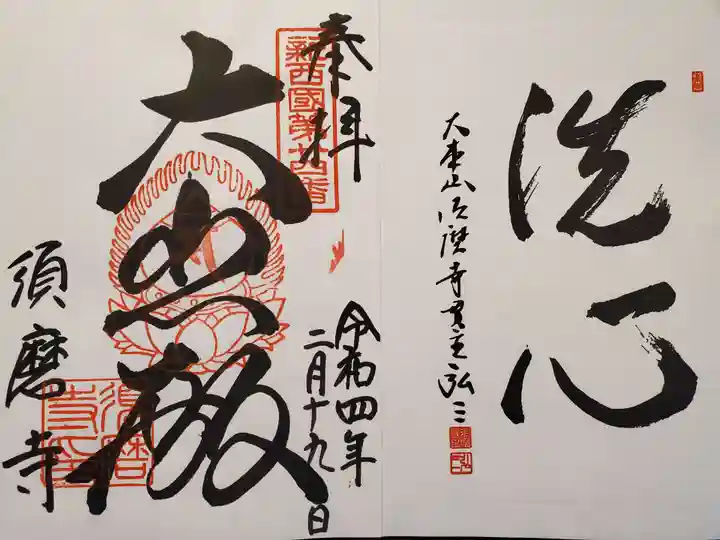 洗心
大本山須磨寺貫主弘三
奉拝
新西國第廿四番
大悲殿
令和四年
二月十九日
須磨寺
須磨寺印